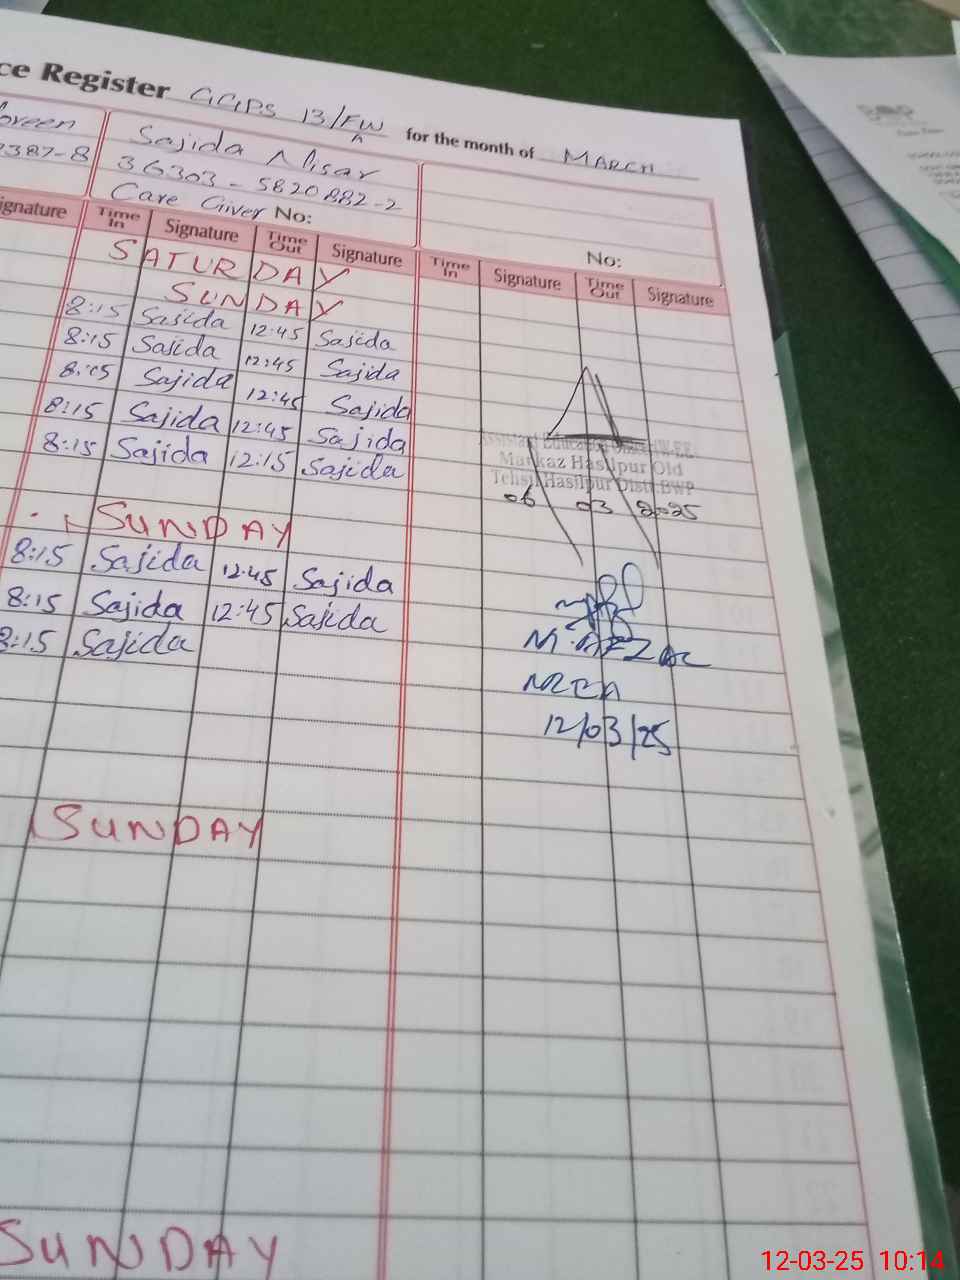 ce Register GGPS 13/FW for the month of MARCH
oreen Sajida Nisar
387-8 36303-5820882-2
Care Giver No: No:
ignature Time In Signature Time Out Signature Time In Signature Time Out Signature
SATURDAY
SUNDAY
8:15 Sajida 12:45 Sajida
8:15 Sajida 12:45 Sajida
8:15 Sajida 12:45 Sajida
8:15 Sajida 12:45 Sajida
8:15 Sajida 12:15 Sajida
Assistant Education Officer (W-EE)
Markaz Hasilpur Old
Tehsil Hasilpur Distt: BWP
06 03 2025
SUNDAY
8:15 Sajida 12:45 Sajida
8:15 Sajida 12:45 Sajida
8:15 Sajida
12/03/25
SUNDAY
SUNDAY
12-03-25 10:14